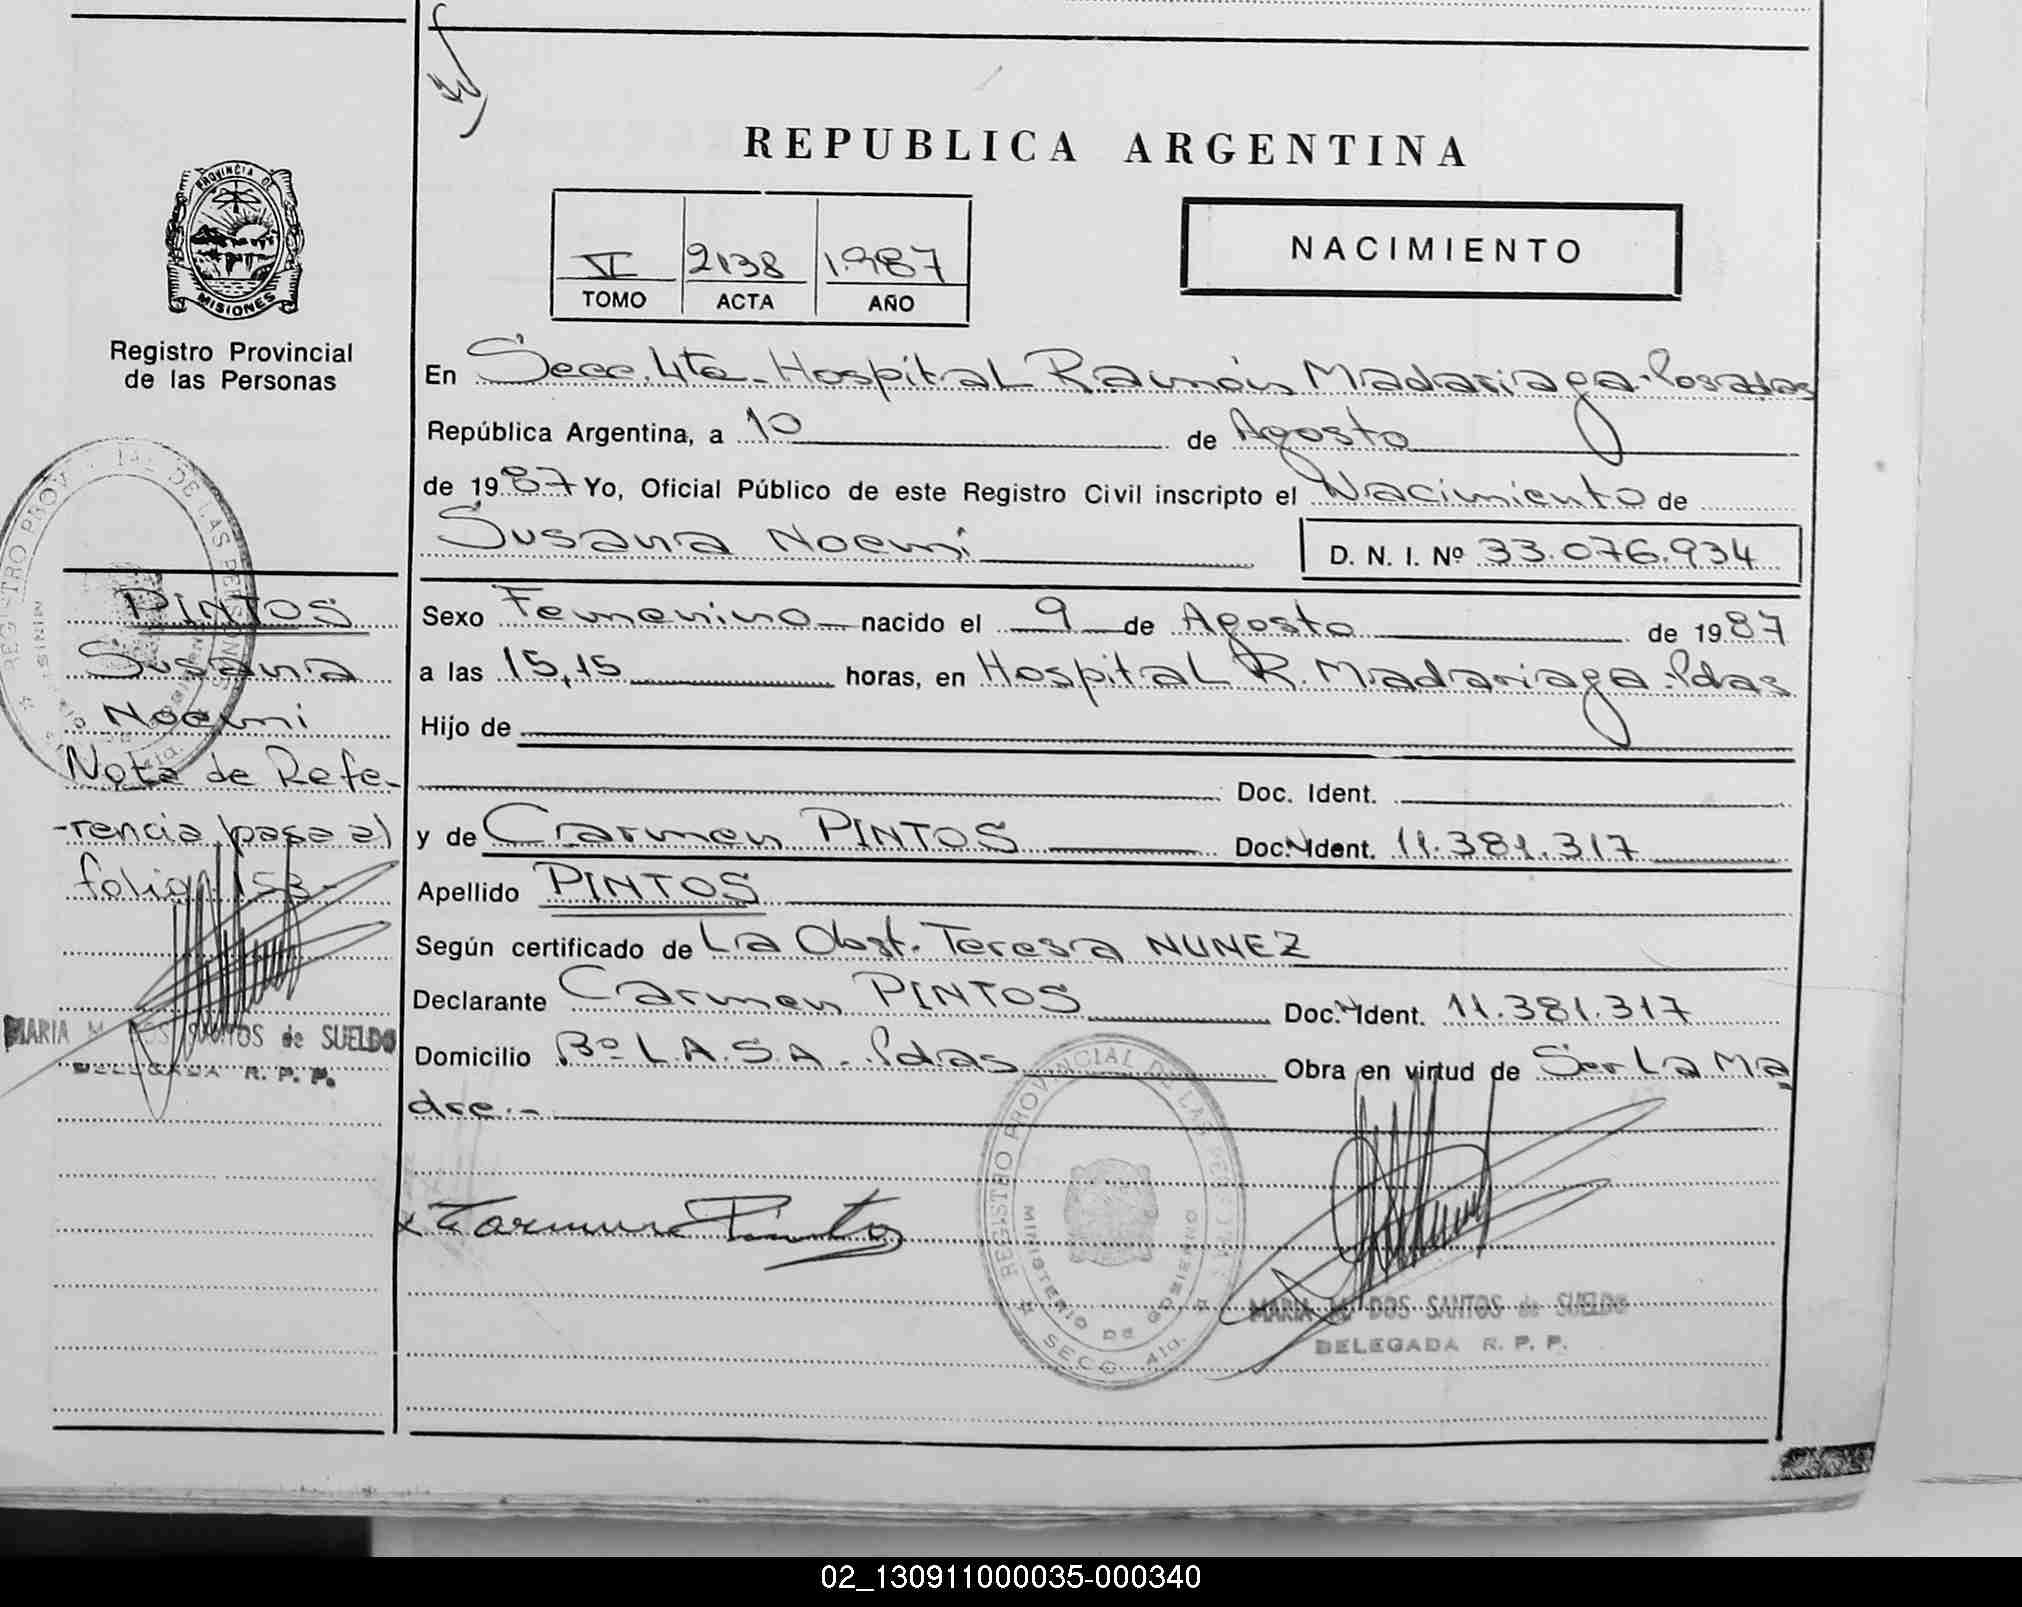 REPUBLICA ARGENTINA
PROVINCIA DE
MISIONES
Registro Provincial
de las Personas
VI 2138 1.987
TOMO ACTA AÑO
NACIMIENTO
En Secc. 4ta - Hospital Ramón Madariaga - Posadas
República Argentina, a 10 de Agosto
de 1987 Yo, Oficial Público de este Registro Civil inscripto el Nacimiento de
Susana Noemi
D. N. I. Nº 33.076.934
Sexo Femenino nacido el 9 de Agosto de 1987
a las 15,15 horas, en Hospital R. Madariaga - Pdas
Hijo de
Doc. Ident.
y de Carmen PINTOS Doc. N Ident. 11.381.317
Apellido PINTOS
Según certificado de La Obst. Teresa NUNEZ
Declarante Carmen PINTOS Doc. N Ident. 11.381.317
Domicilio Bº L.A.S.A - Pdas Obra en virtud de Ser La Ma
dre.-
Carmen Pintos
REGISTRO PROVINCIAL DE LAS PERSONAS
MINISTERIO DE GOBIERNO
SECC. 4ta.
MARIA M. DOS SANTOS de SUELDO
DELEGADA R. P. P.
PINTOS
Susana
Noemi
Nota de Refe-
-rencia pasa al
folio 153-
REGISTRO PROVINCIAL DE LAS PERSONAS
MARIA M. DOS SANTOS de SUELDO
DELEGADA R. P. P.
02_130911000035-000340